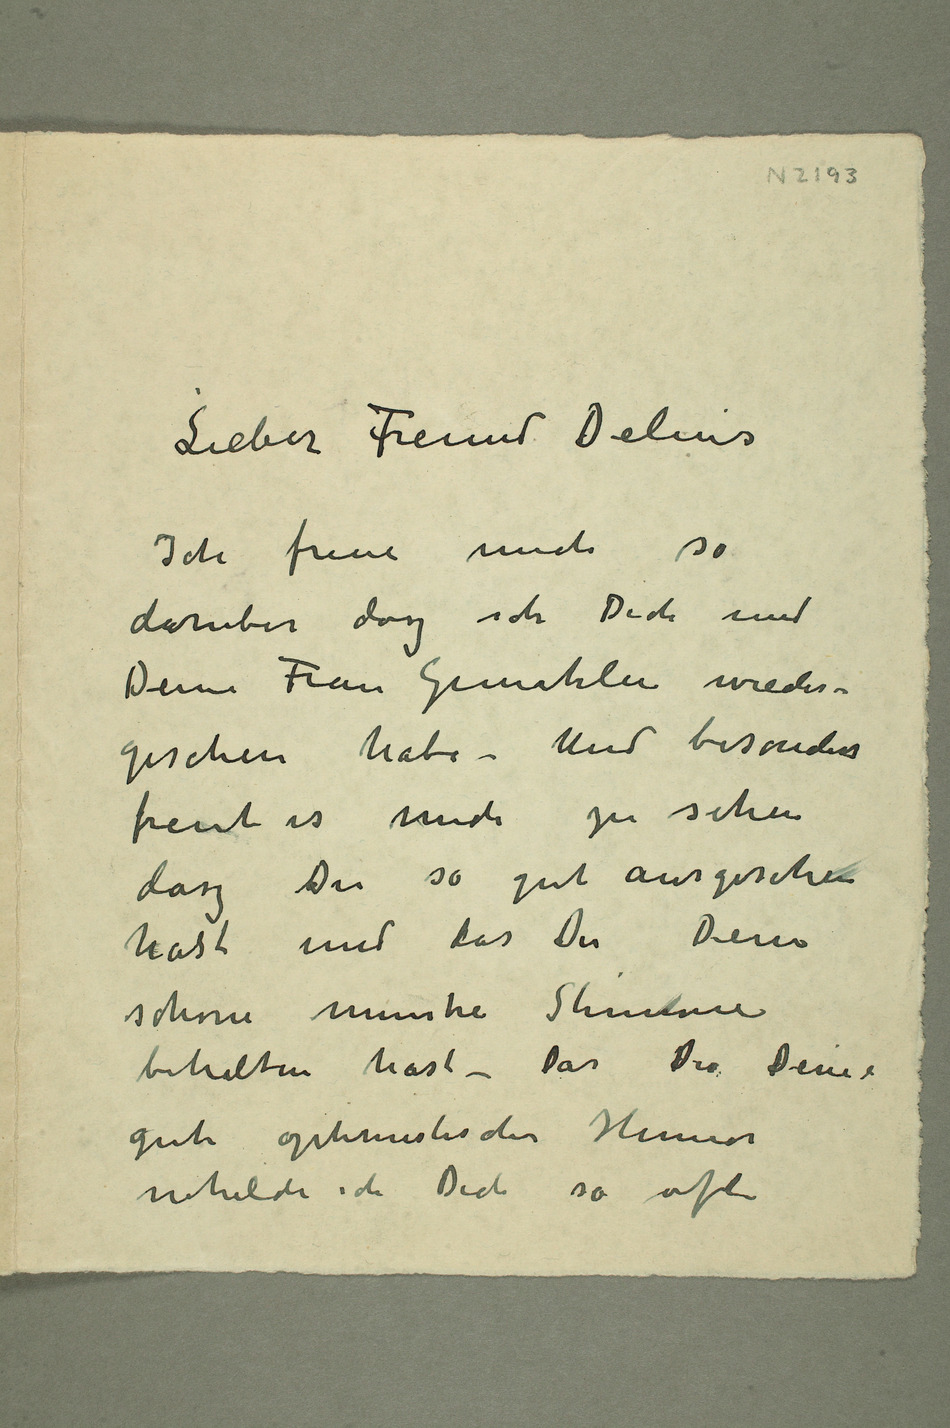 N 2193
Lieber Freund Delius
Ich freue mich so
daruber dasz ich Dich und
Deine Frau Gemahlin wieder-
gesehen habe – Und besonders
freut es mich zu sehen
dasz Du so gut ausgesehen
hast und das Du Deine
schöne muntre Stimme
behalten hast – Das Du Deine
gute optimistischer Humor
ich Dich so oft